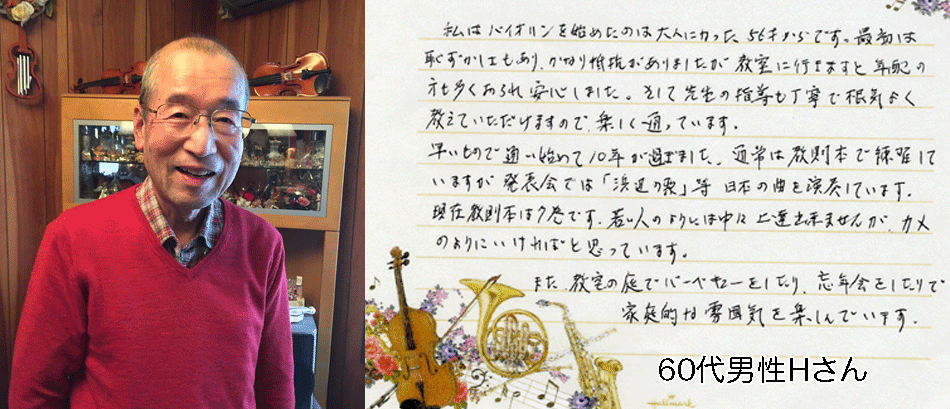 私はバイオリンを始めたのは大人になった56才からです。最初は
恥ずかしさもあり、かなり抵抗がありましたが教室に行きますと年配の
方も多くおられ安心しました。そして先生の指導も丁寧で根気よく
教えていただけますので、楽しく通っています。
早いもので通い始めて10年が過ぎました。通常は教則本で練習して
いますが発表会では「浜辺の歌」等日本の曲を演奏しています。
現在教則本は7巻です。若い人のようには中々上達出来ませんが、カメ
のようにいければと思っています。
また、教室の庭でバーベキューをしたり、忘年会をしたりで
家庭的な雰囲気を楽しんでいます。
60代男性Hさん
Hallmark